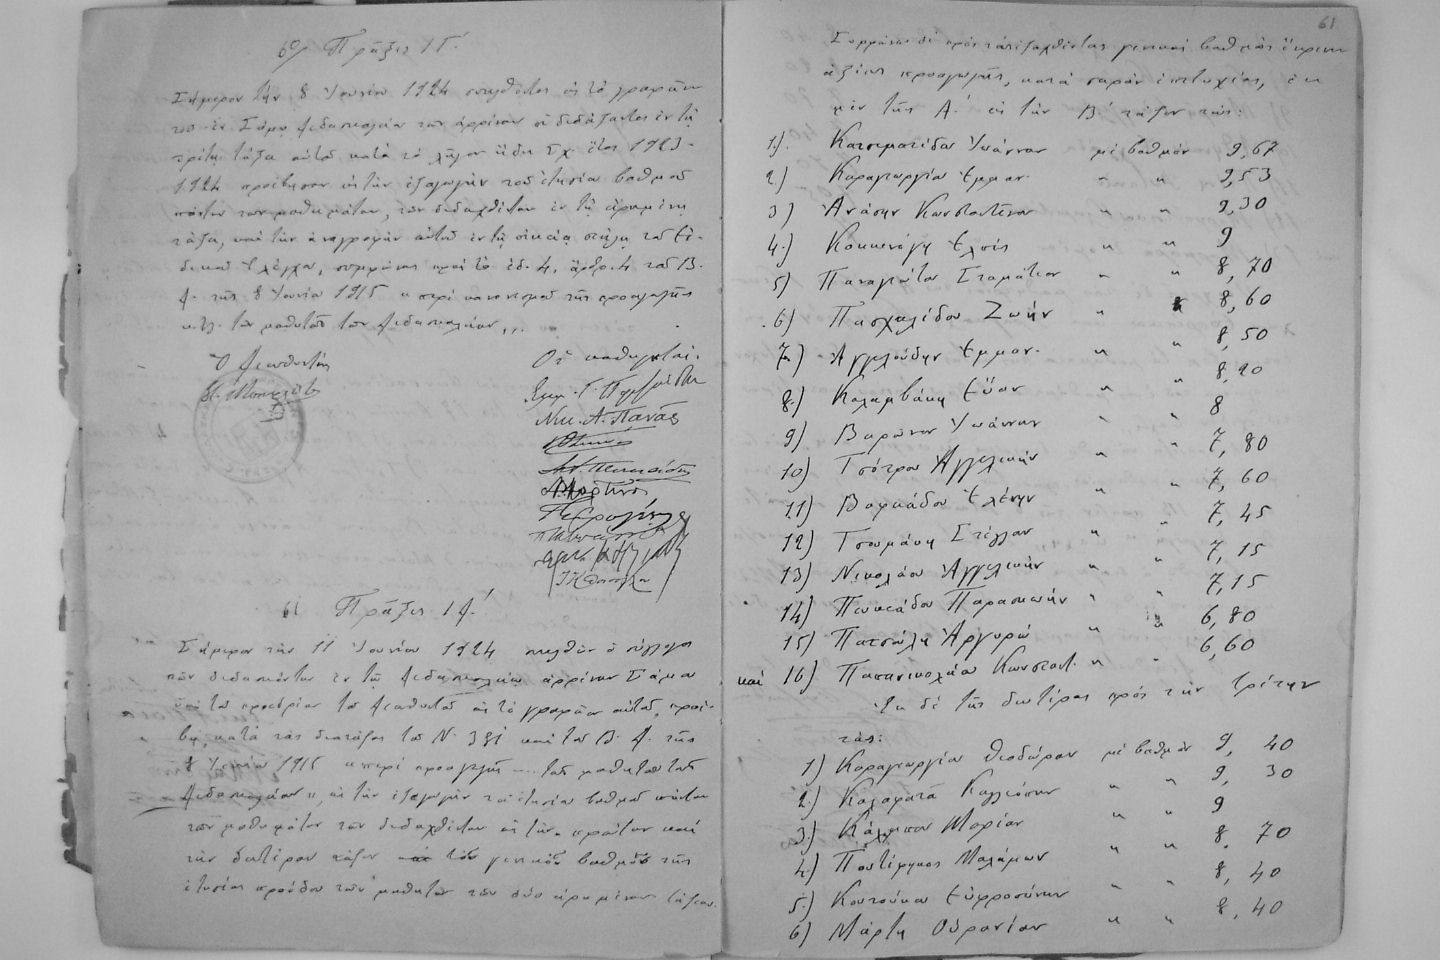 60) Πρᾶξις ΙΓ΄.
Σήμερον τὴν 8 Ἰουνίου 1924 συνελθόντες εἰς τὸ γραφεῖον
τοῦ ἐν Σάμῳ Διδασκαλείου τῶν ἀρρένων οἱ διδάξαντες ἐν τῇ
τρίτῃ τάξει αὐτοῦ κατὰ τὸ λῆγον ἤδη σχ. ἔτος 1923-
1924 προέβησαν εἰς τὴν ἐξαγωγὴν τοῦ ἐτησίου βαθμοῦ
πάντων τῶν μαθημάτων, τῶν διδαχθέντων ἐν τῇ εἰρημένῃ
τάξει, καὶ τὴν ἀναγραφὴν αὐτοῦ ἐν τῇ οἰκείᾳ στήλῃ τοῦ Εἰ-
δικοῦ Ἐλέγχου, συμφώνως πρὸς τὸ ἐδ. 4, ἄρθρ. 4 τοῦ Β.
Δ. τῆς 8 Ἰουνίου 1915 "περὶ κανονισμοῦ τῆς προαγωγῆς
κ.τ.λ. τῶν μαθητῶν τῶν Διδασκαλείων,,.
Ὁ Διευθυντής
Οἱ καθηγηταί.
Νικ. Δ. Πανᾶς
61 Πρᾶξις ΙΔ΄.
Σήμερον τὴν 11 Ἰουνίου 1924 συνελθὼν ὁ σύλλογος
τῶν διδασκόντων ἐν τῷ Διδασκαλείῳ ἀρρένων Σάμου
ὑπὸ τὴν προεδρίαν τοῦ Διευθυντοῦ εἰς τὸ γραφεῖον αὐτοῦ, προέ-
βη, κατὰ τὰς διατάξεις τοῦ Ν. 381 καὶ τοῦ Β. Δ. τῆς
8 Ἰουνίου 1915 "περὶ προαγωγῆς .... τῶν μαθητῶν τῶν
Διδασκαλείων", εἰς τὴν ἐξαγωγὴν τοῦ ἐτησίου βαθμοῦ πάντων
τῶν μαθημάτων τῶν διδαχθέντων εἰς τὴν πρώτην καὶ
τὴν δευτέραν τάξιν καὶ τοῦ γενικοῦ βαθμοῦ τῆς
ἐτησίας προόδου τῶν μαθητῶν τῶν δύο εἰρημένων τάξεων.
61
Συμφώνως δὲ πρὸς τοὺς ἐξαχθέντας γενικοὺς βαθμοὺς ἔκρινεν
ἀξίους προαγωγῆς, κατὰ σειρὰν ἐπιτυχίας, ἐκ
μὲν τῆς Α΄. εἰς τὴν Β΄ τάξιν τούς:
1). Κατσιματίδου Ἰωάνναν μὲ βαθμὸν 9,67
2) Καραγιωργίου Ἐμμαν. " " 9,53
3) Ἀνάσην Κωνσταντῖνον " " 9,30
4.) Κοκκινάκη Ἐλπίς " " 9
5) Παναγιώτου Σταμάτιον " " 8,70
6) Πασχαλίδου Ζωήν " " 8,60
7) Ἀγγελούδην Ἐμμαν. " " 8,50
8.) Καλαμβάκη Εὔαν " " 8,20
9) Βαρώνου Ἰωάνναν " " 8
10) Τσότρου Ἀγγελικήν " " 7,80
11) Βαφιάδου Ἑλένην " " 7,60
12) Τσουμάκη Στέλλαν " " 7,45
13) Νικολάου Ἀγγελικήν " " 7,15
14) Πευκιάδου Παρασκευήν " " 7,15
15) Πατσάλη Ἀργυρώ " " 6,80
καὶ 16) Παπανικολάου Κωνσταντ. " " 6,60
Ἐκ δὲ τῆς δευτέρας πρὸς τὴν τρίτην
τάς:
1) Καραγιωργίου Θεοδώραν μὲ βαθμὸν 9,40
2.) Καλαφατᾶ Καλλιόπην " " 9,30
3.) Κάλμπου Μαρίαν " " 9
4) Ποντίφηκος Μαλάμων " " 8,70
5.) Κουτσούκου Εὐφροσύνην " " 8,40
6) Μάρτη Οὐρανίαν " " 8,40